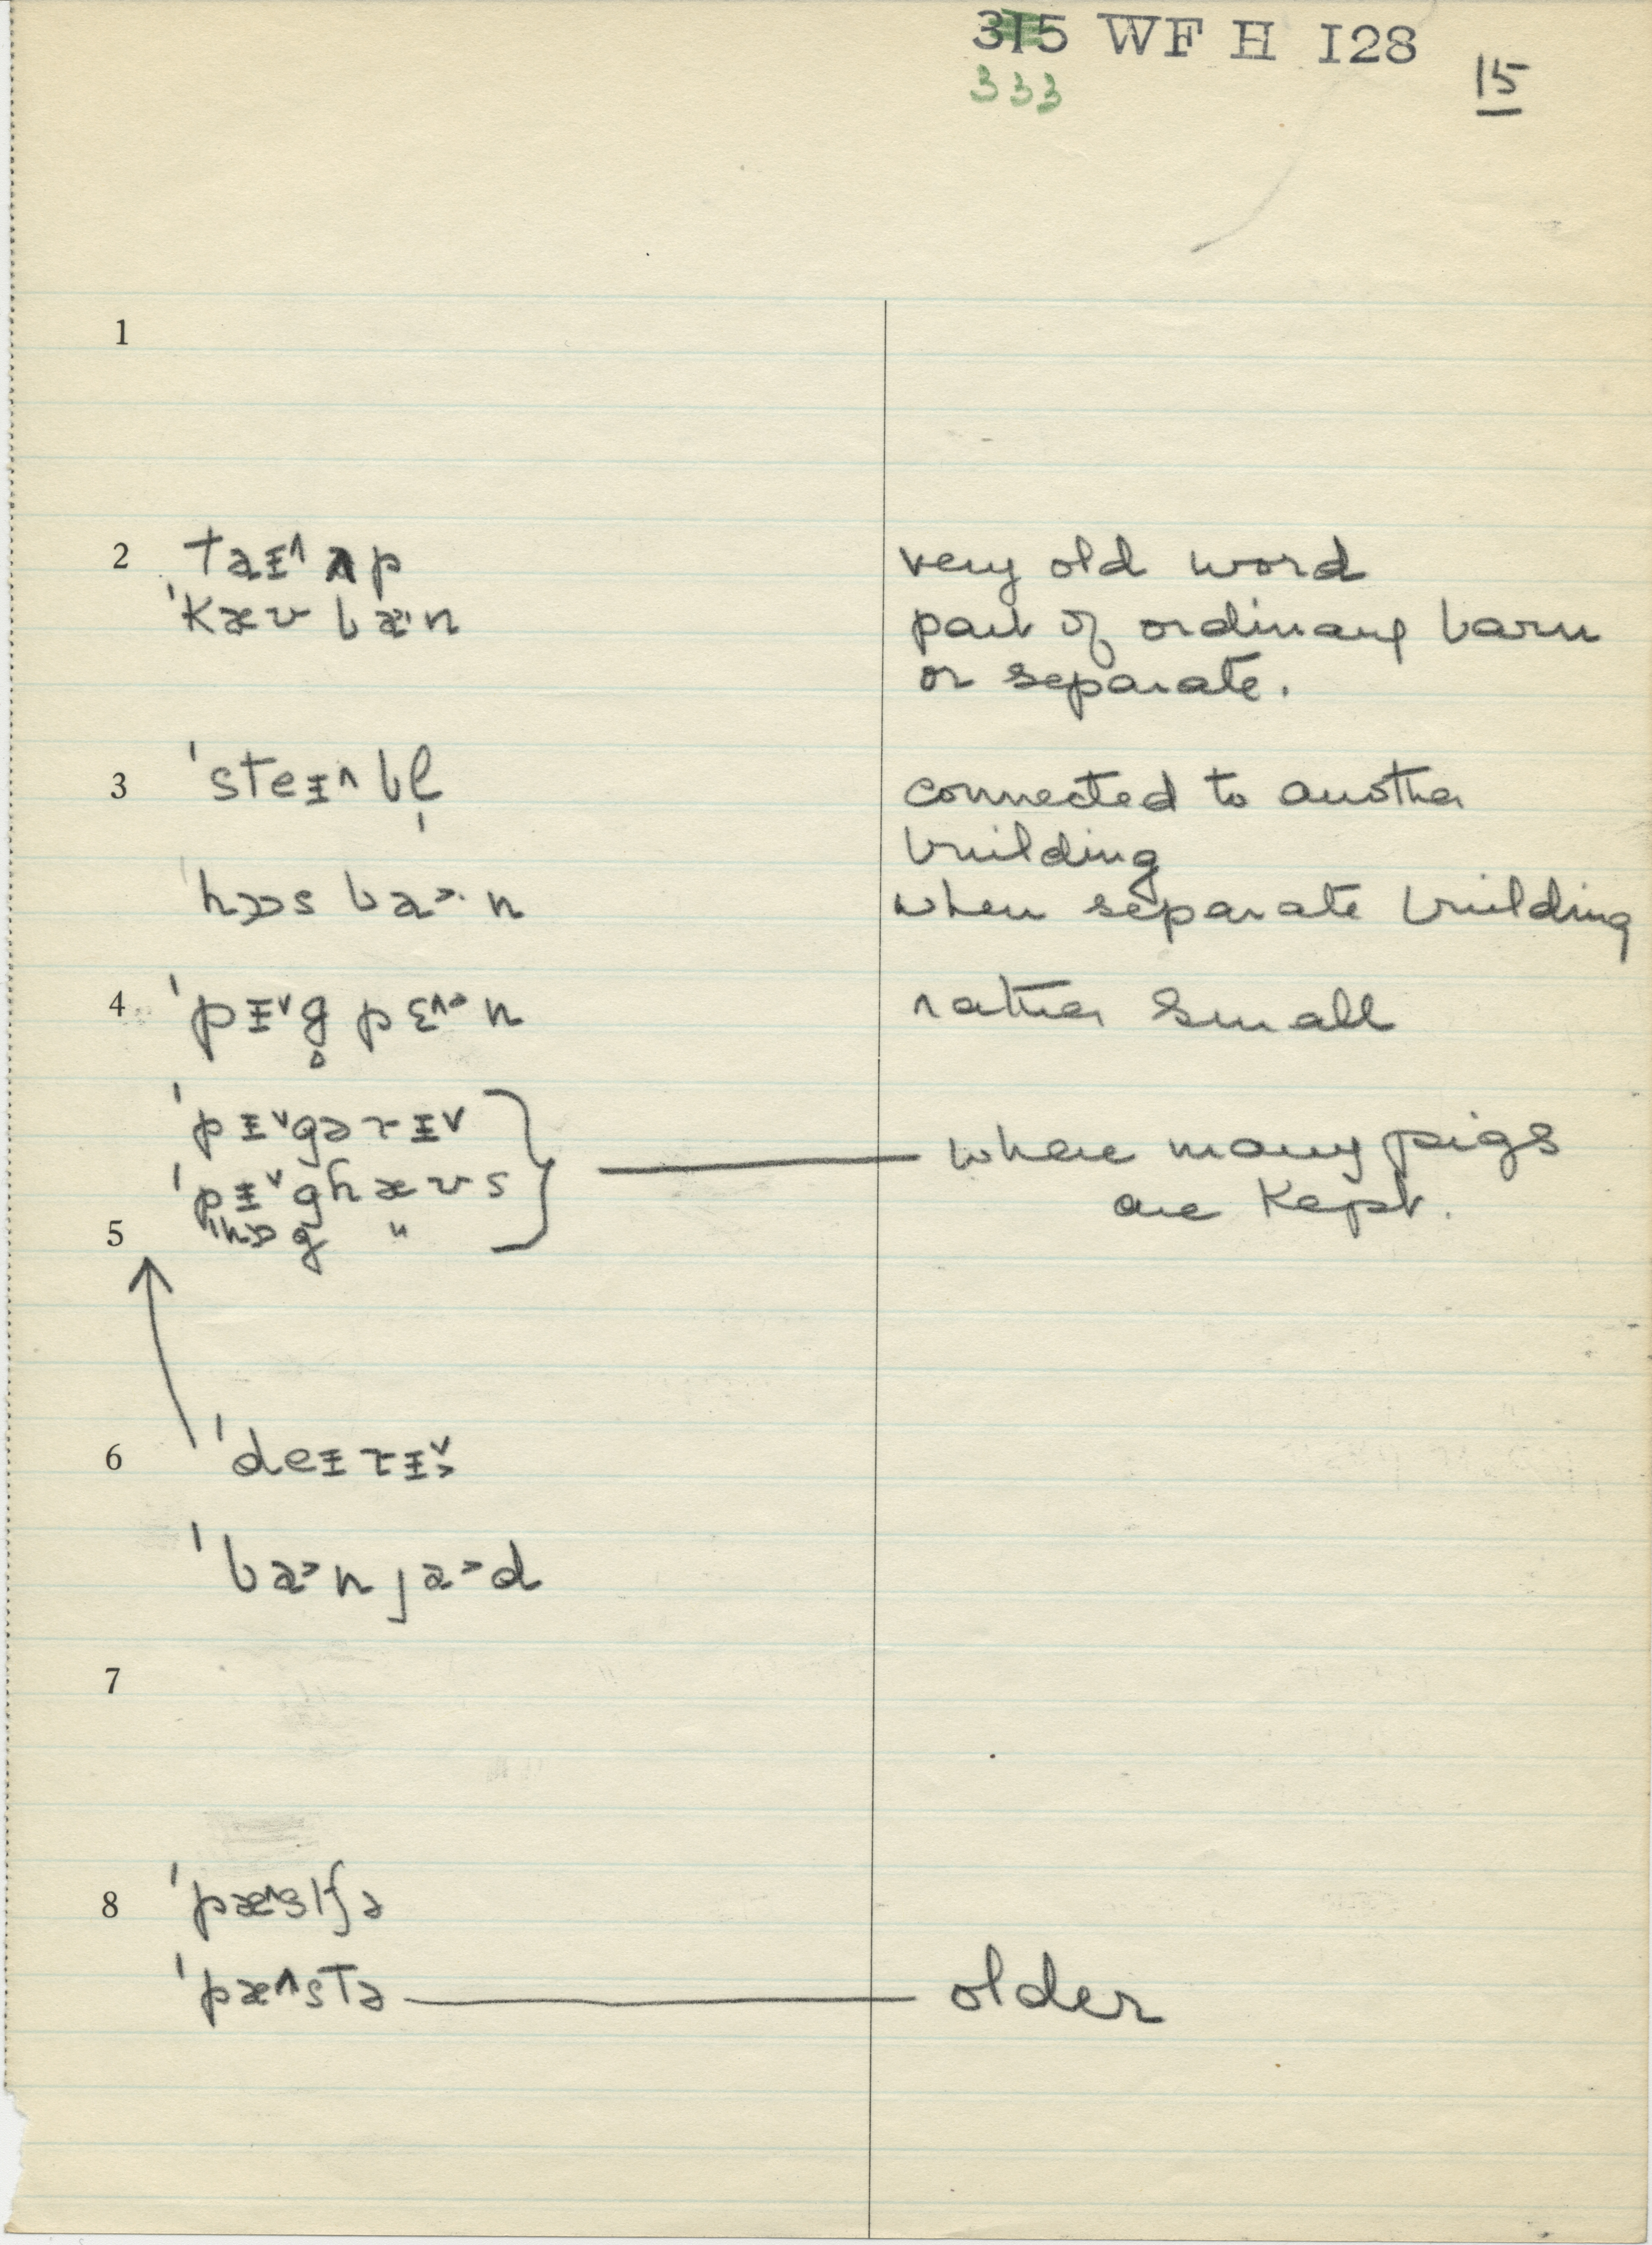 315 WF H I28
333
15
1
2 taɪ^ ʌp very old word
'kæʊ bæ·n part of ordinary barn
or separate.
3 'steɪ^bl̩ connected to another
building
'hɔɔs ba>·n when separate building
4 'pɪˇg̥ pɛ^ən rather small
'pɪˇgəɹɪˇ
'pɪˇghæʊs where many pigs
are kept.
5 "hɒg "
6 'deɪɹɪˇ>
'ba>n ja>d
7
8 'pæ^stʃə
'pæ^stə older